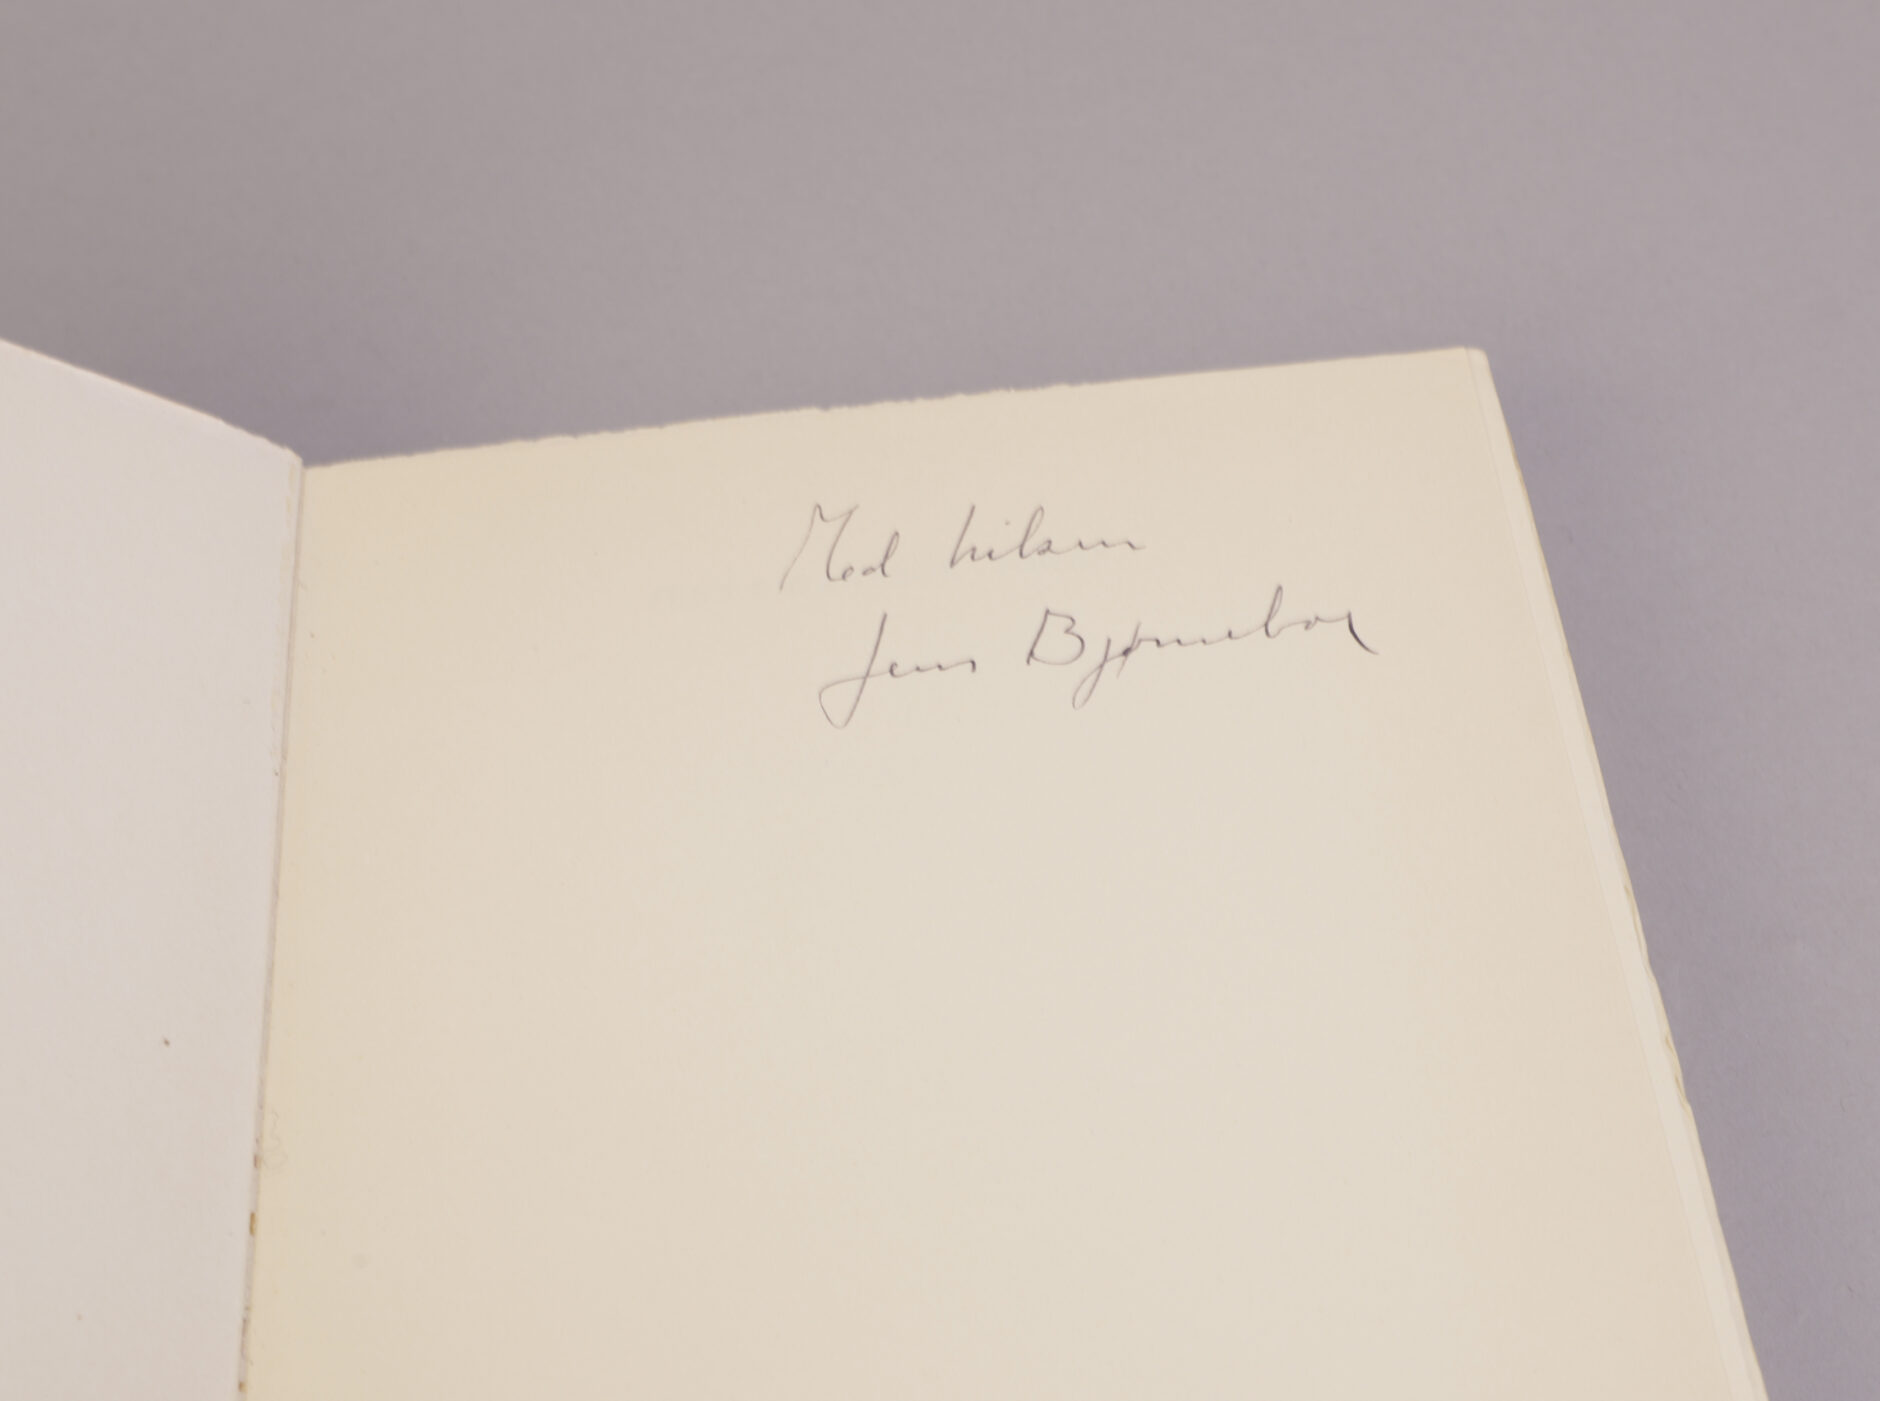 Med hilsen
Jens Bjørneboe